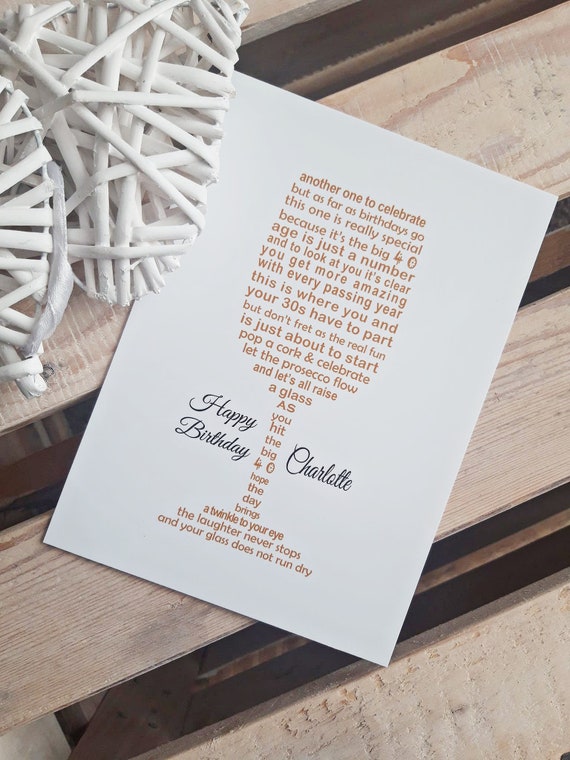 another one to celebrate
but as far as birthdays go
this one is really special
because it's the big 40
age is just a number
and to look at you it's clear
you get more amazing
with every passing year
this is where you and
your 30s have to part
but don't fret as the real fun
is just about to start
pop a cork & celebrate
let the prosecco flow
and let's all raise
a glass
AS
you
hit
the
big
40
hope
the
day
brings
a twinkle to your eye
the laughter never stops
and your glass does not run dry
Happy
Birthday
Charlotte